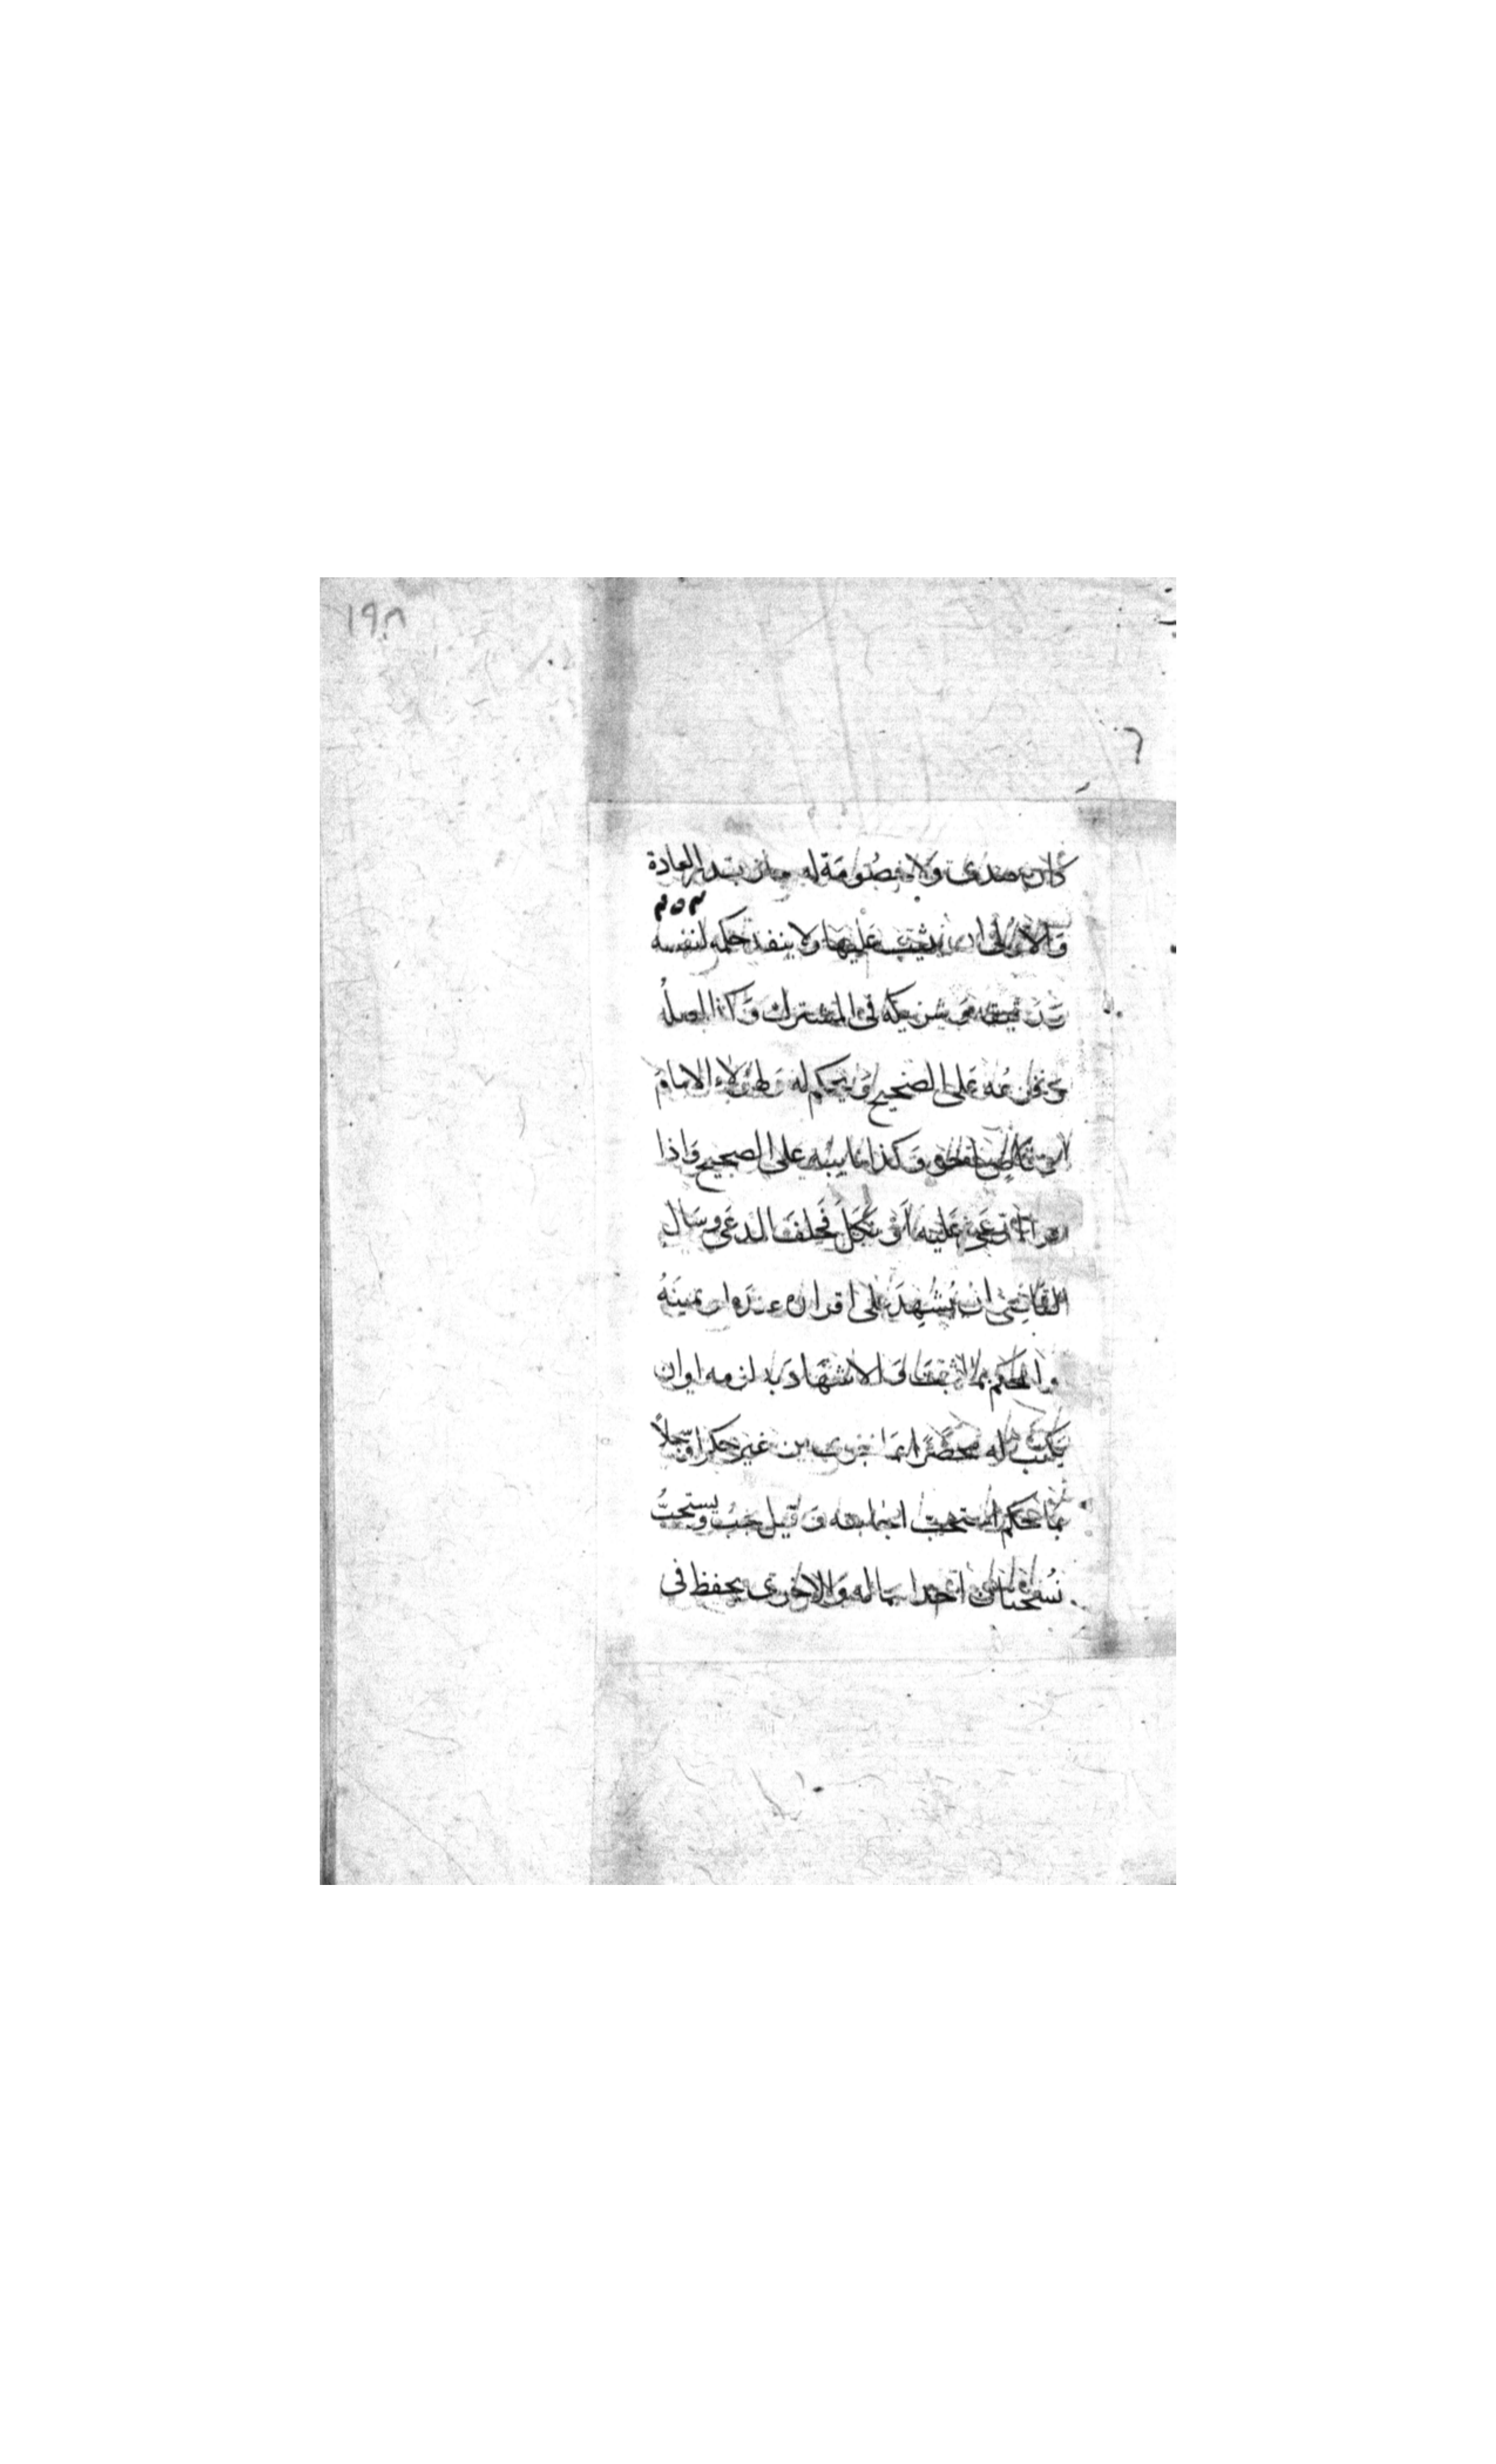 ١٩٨
كان يهدى ولا خصومة له جاز بقدر العادة
٢٥٣
والاولى ان يثيب عليها ولا ينفذ حكمه لنفسه
ورقيقه وشريكه في المشترك وكذا اصله
وفرعه على الصحيح ويحكم له ولهؤلاء الامام
او قاض اخر وكذا نايبه على الصحيح واذا
اقر المدعى عليه او نكل فحلف المدعى وسال
القاضى ان يشهد على اقراره عنده او يمينه
او الحكم بما ثبت والاشهاد به لزمه او ان
يكتب له محضرا بما جرى من غير حكم او سجلا
بما حكم استحب اجابته وقيل يجب ويستحب
نسختان احداهما له والاخرى يحفظ في